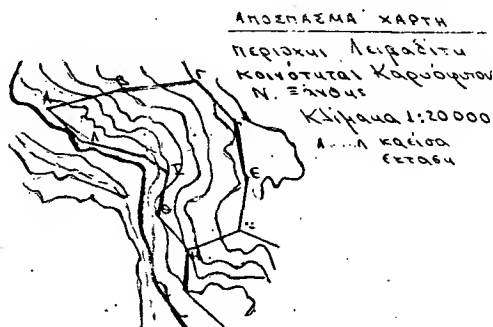 ΑΠΟΣΠΑΣΜΑ ΧΑΡΤΗ
περιοχής Λειβαδίτη
κοινότητας Καρυόφυτου
Ν. Ξάνθης
Κλίμακα 1:20000
Α...Λ καείσα
έκταση
Α
Β
Γ
Λ
Ε
Θ
Ζ
Η